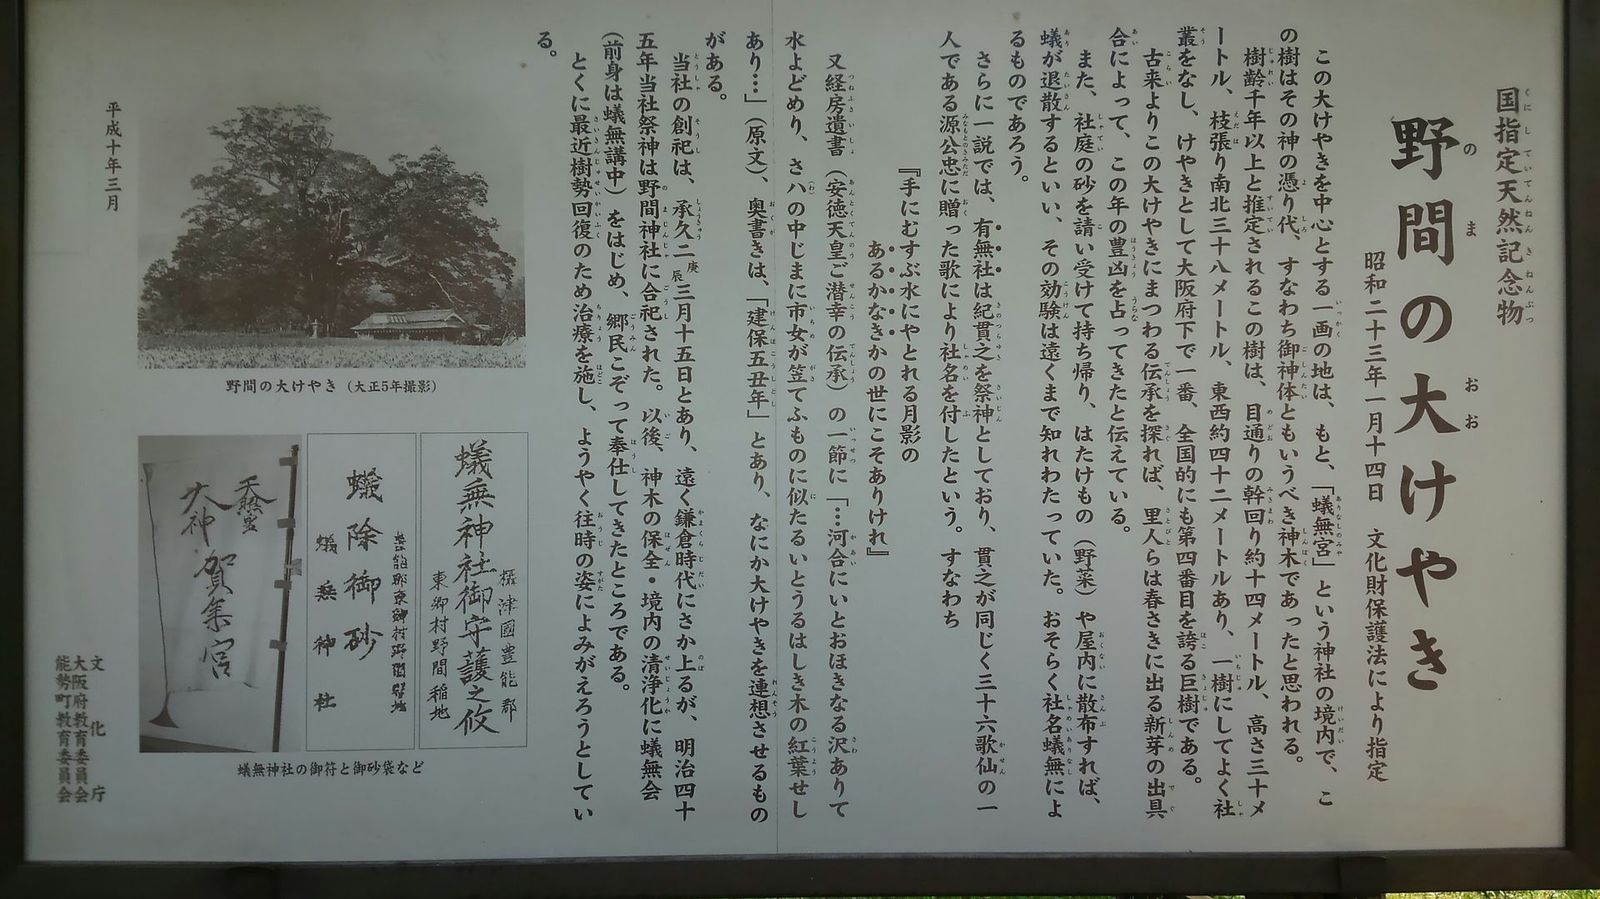 国指定天然記念物
野間の大けやき
昭和二十三年一月十四日 文化財保護法により指定
この大けやきを中心とする一画の地は、もと、「蟻無宮」という神社の境内で、こ
の樹はその神の憑り代、すなわち御神体ともいうべき神木であったと思われる。
樹齢千年以上と推定されるこの樹は、目通りの幹回り約十四メートル、高さ三十メ
ートル、枝張り南北三十八メートル、東西約四十二メートルあり、一樹にしてよく社
叢をなし、けやきとして大阪府下で一番、全国的にも第四番目を誇る巨樹である。
古来よりこの大けやきにまつわる伝承を探れば、里人らは春さきに出る新芽の出具
合によって、この年の豊凶を占ってきたと伝えている。
また、社庭の砂を請い受けて持ち帰り、はたけもの(野菜)や屋内に散布すれば、
蟻が退散するといい、その効験は遠くまで知れわたっていた。おそらく社名蟻無によ
るものであろう。
さらに一説では、有無社は紀貫之を祭神としており、貫之が同じく三十六歌仙の一
人である源公忠に贈った歌により社名を付したという。すなわち
『手にむすぶ水にやとれる月影の
あるかなきかの世にこそありけれ』
又経房遺書(安徳天皇ご潜幸の伝承)の一節に「…河合にいとおほきなる沢ありて
水よどめり、さハの中じまに市女が笠てふものに似たるいとうるはしき木の紅葉せし
あり…」(原文)、奥書きは、「建保五丑年」とあり、なにか大けやきを連想させるもの
がある。
当社の創祀は、承久二庚辰三月十五日とあり、遠く鎌倉時代にさか上るが、明治四十
五年当社祭神は野間神社に合祀された。以後、神木の保全・境内の清浄化に蟻無会
(前身は蟻無講中)をはじめ、郷民こぞって奉仕してきたところである。
とくに最近樹勢回復のため治療を施し、ようやく往時の姿によみがえろうとしてい
る。
平成十年三月
文化庁
大阪府教育委員会
能勢町教育委員会
野間の大けやき(大正5年撮影)
摂津國豊能郡
東郷村野間稲地
蟻無神社御守護之攸
豊能郡東郷村野間稲地
蟻除御砂
蟻無神社
天照皇
大神
賀集宮
蟻無神社の御符と御砂袋など